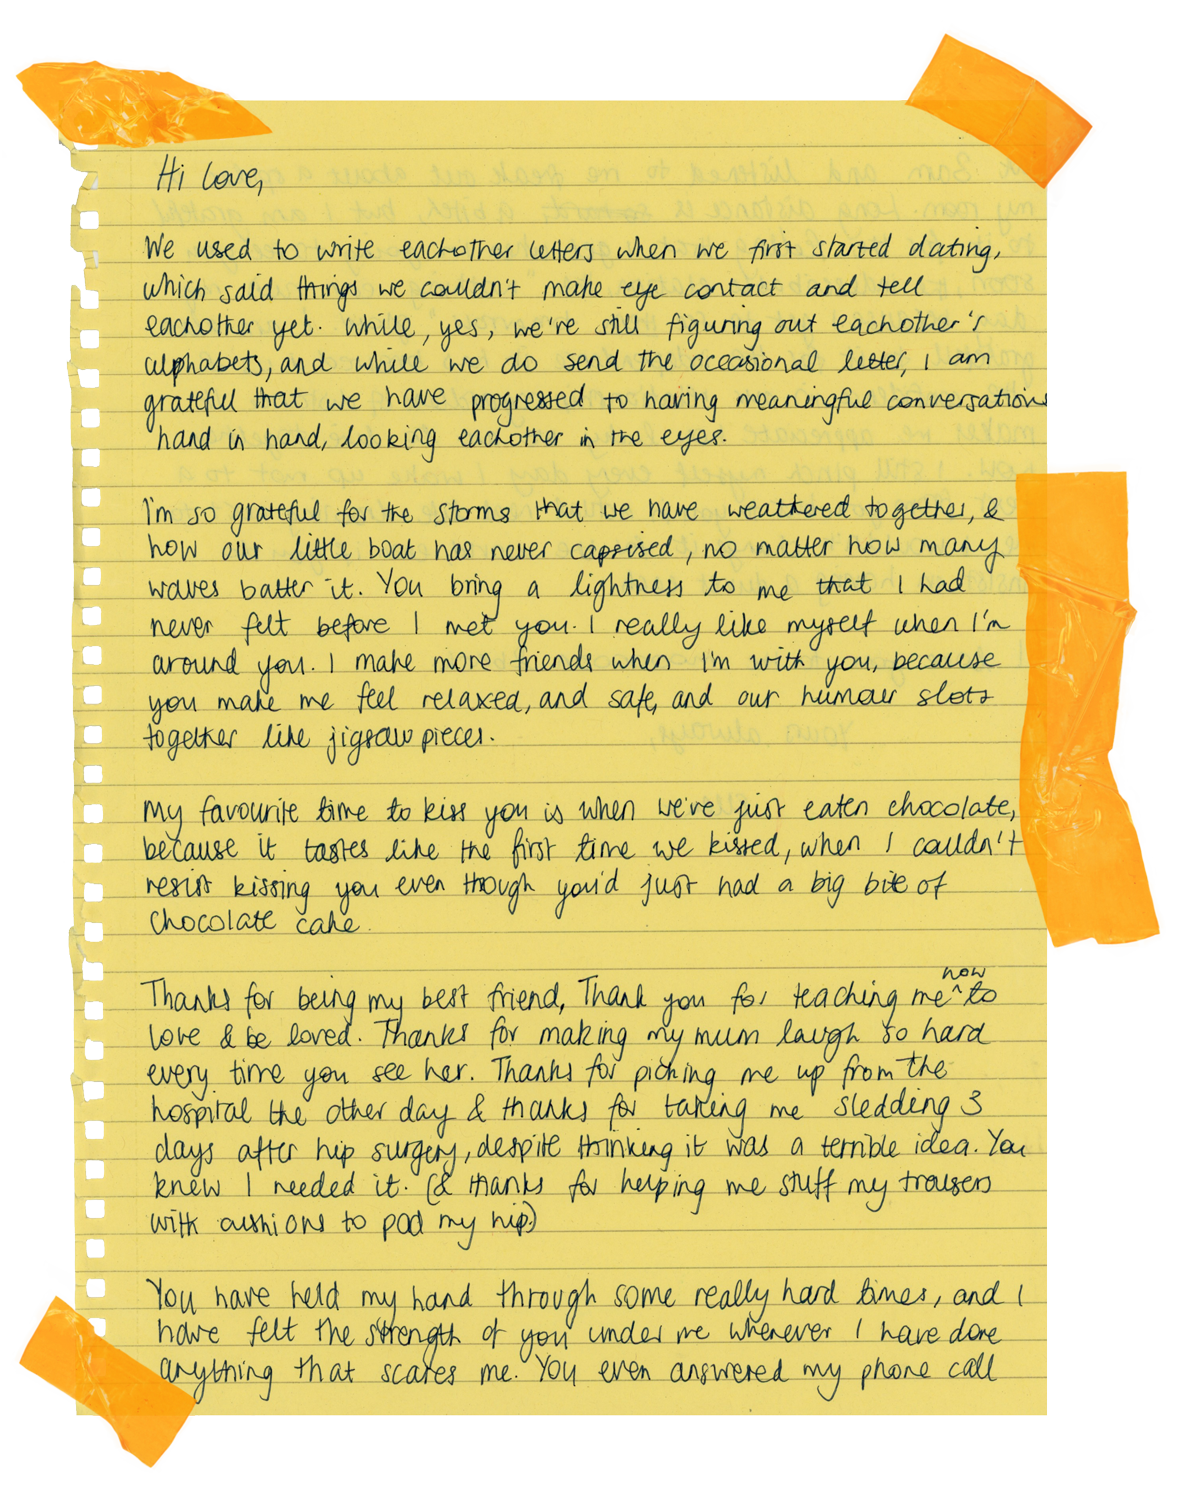 Hi love,
We used to write eachother letters when we first started dating,
which said things we couldn't make eye contact and tell
eachother yet. While, yes, we're still figuring out eachother's
alphabets, and while we do send the occasional letter, I am
grateful that we have progressed to having meaningful conversations
hand in hand, looking eachother in the eyes.
I'm so grateful for the storms that we have weathered together, &
how our little boat has never capsised, no matter how many
waves batter it. You bring a lightness to me that I had
never felt before I met you. I really like myself when I'm
around you. I make more friends when I'm with you, because
you make me feel relaxed, and safe, and our humour slots
together like jigsaw pieces.
My favourite time to kiss you is when we've just eaten chocolate,
because it tastes like the first time we kissed, when I couldn't
resist kissing you even though you'd just had a big bite of
chocolate cake.
Thanks for being my best friend, Thank you for teaching me how to
love & be loved. Thanks for making my mum laugh so hard
every time you see her. Thanks for picking me up from the
hospital the other day & thanks for taking me sledding 3
days after hip surgery, despite thinking it was a terrible idea. You
knew I needed it. (& thanks for helping me stuff my trousers
with cushions to pad my hip.)
You have held my hand through some really hard times, and I
have felt the strength of you under me whenever I have done
anything that scares me. You even answered my phone call